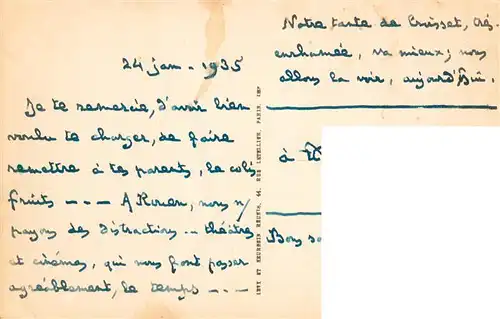 24 jan - 1935
Je te remercie, d'avoir bien
voulu te charger, de faire
remettre à tes parents, le colis
fruits - - - A Rouen, nous n/
payons des distractions - théâtre
et cinémas, qui nous font passer
agréablement, le temps - - -
LEVY ET NEURDEIN RÉUNIS, 44, RUE LETELLIER, PARIS. IMP
Notre tante de Croisset,
enrhumée, va mieux; nous
allons la voir, aujourd'hui.
à
Bons